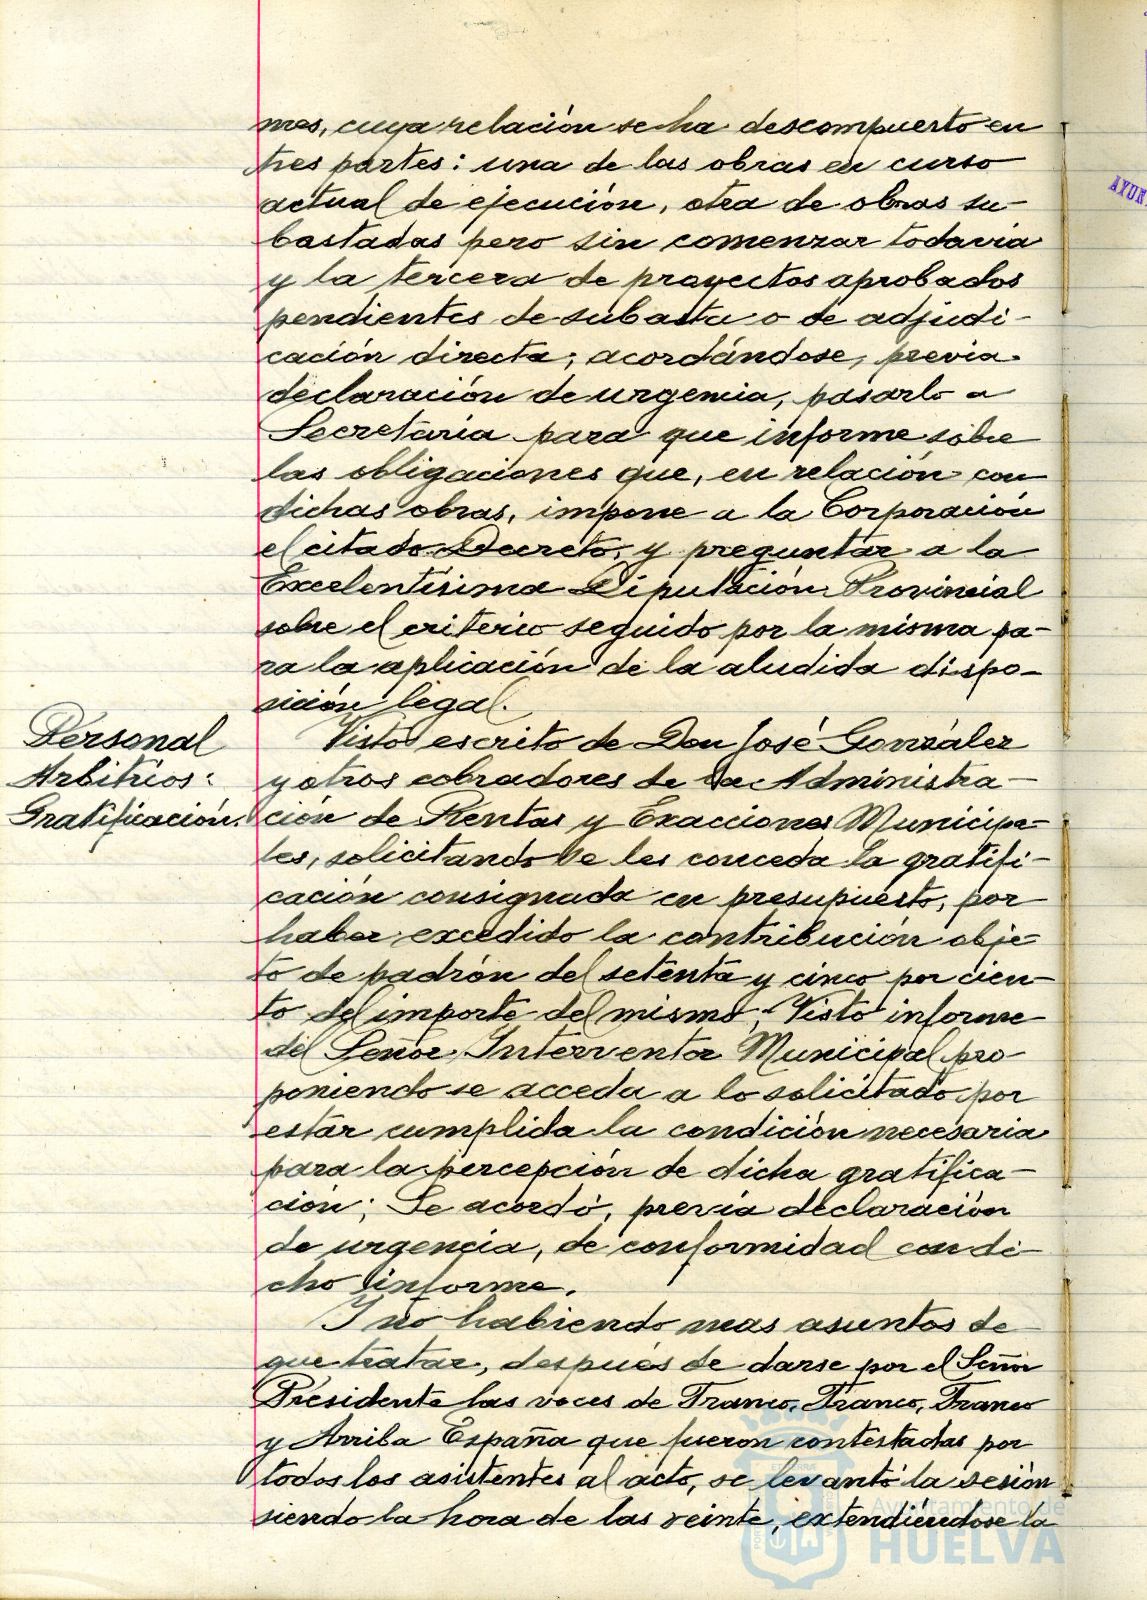 mos, cuya relación se ha descompuesto en
tres partes: una de las obras en curso
actual de ejecución, otra de obras su-
bastadas pero sin comenzar todavía
y la tercera de proyectos aprobados
pendientes de subasta o de adjudi-
cación directa; acordándose, previa
declaración de urgencia, pasarlo a
Secretaría para que informe sobre
las obligaciones que, en relación con
dichas obras, impone a la Corporación
el citado Decreto, y preguntar a la
Excelentísima Diputación Provincial
sobre el criterio seguido por la misma pa-
ra la aplicación de la aludida dispo-
sición legal.
Personal
Arbitrios:
Gratificación.
Visto escrito de Don José González
y otros cobradores de la Administra-
ción de Rentas y Exacciones Municipa-
les, solicitando se les conceda la gratifi-
cación consignada en presupuesto, por
haber excedido la contribución obje-
to de padrón del setenta y cinco por cien-
to del importe del mismo; Visto informe
del Señor Interventor Municipal pro-
poniendo se acceda a lo solicitado por
estar cumplida la condición necesaria
para la percepción de dicha gratifica-
ción; Se acordó, previa declaración
de urgencia, de conformidad con di-
cho informe.
Y no habiendo mas asuntos de
que tratar, después de darse por el Señor
Presidente las voces de Franco, Franco, Franco
y Arriba España que fueron contestadas por
todos los asistentes al acto, se levantó la sesión
siendo la hora de las veinte, extendiéndose la
AYUN
Ayuntamiento de
HUELVA